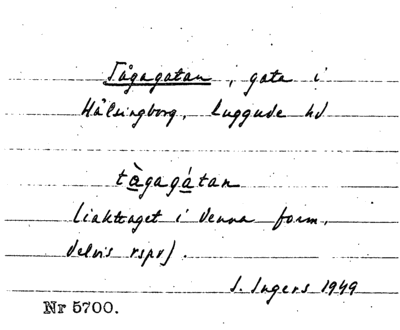 Tågagatan, gata i
Hälsingborg, Luggude hd
tàgagátan
(iakttaget i denna form,
delvis rspr).
I. Ingers 1949
Nr 5700.